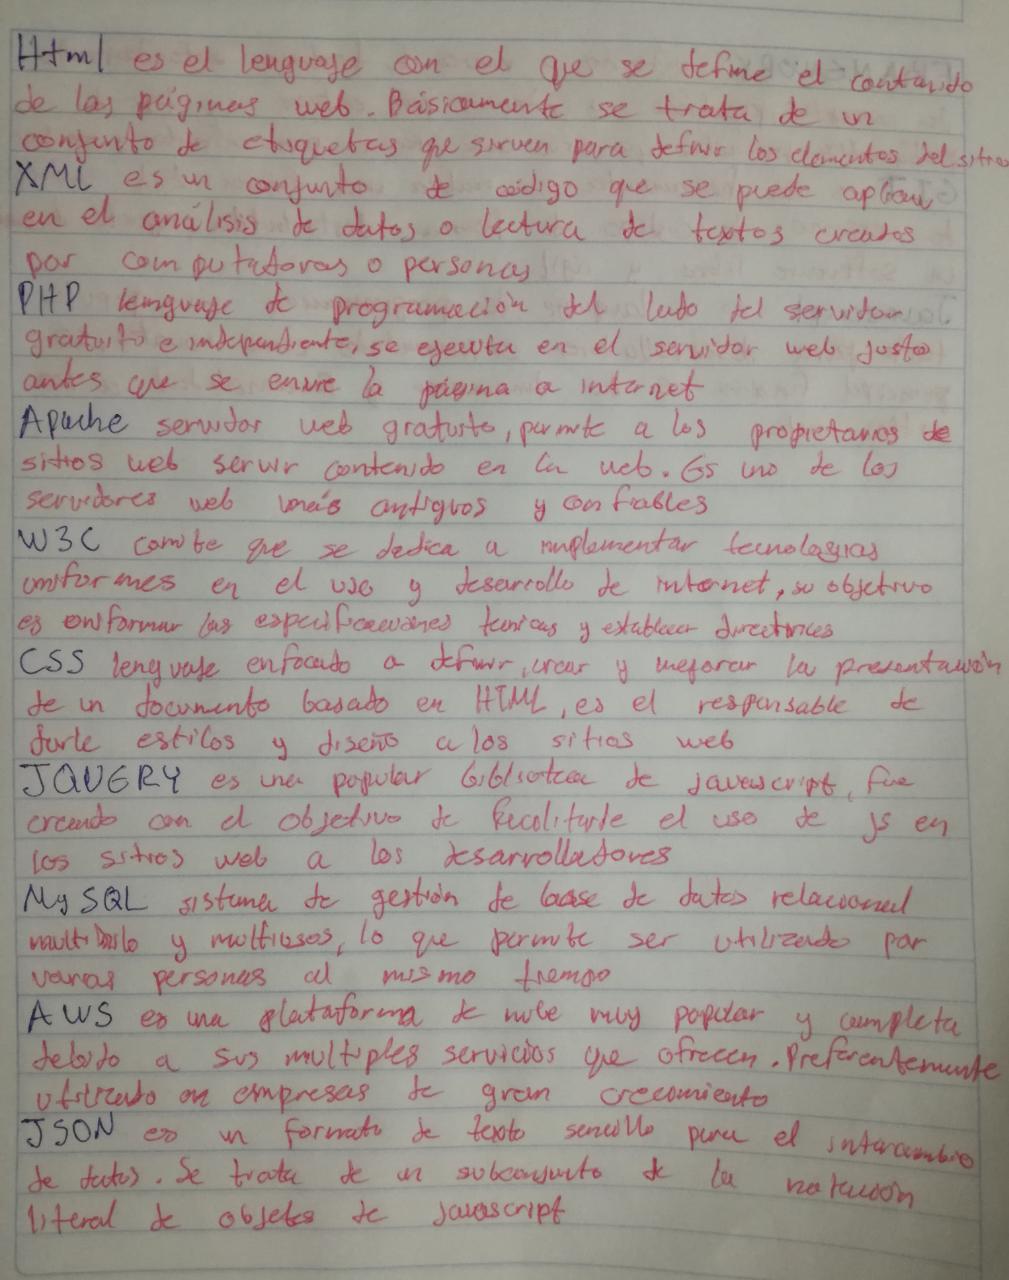 Html es el lenguaje con el que se define el contenido
de las páginas web. Básicamente se trata de un
conjunto de etiquetas que sirven para definir los elementos del sitio
XML es un conjunto de código que se puede aplicar
en el análisis de datos o lectura de textos creados
por computadoras o personas
PHP lenguaje de programación del lado del servidor
gratuito e independiente, se ejecuta en el servidor web justo
antes que se envie la página a internet
Apache servidor web gratuito, permite a los propietarios de
sitios web servir contenido en la web. Es uno de los
servidores web más antiguos y confiables
W3C comite que se dedica a implementar tecnologias
uniformes en el uso y desarrollo de internet, su objetivo
es conformar las especificaciones tecnicas y establecer directrices
CSS lenguaje enfocado a definir, crear y mejorar la presentación
de un documento basado en HTML, es el responsable de
darle estilos y diseño a los sitios web
JQUERY es una popular biblioteca de javascript, fue
creado con el objetivo de facilitarle el uso de js en
los sitios web a los desarrolladores
MySQL sistema de gestión de base de datos relacional
multihilo y multiusos, lo que permite ser utilizado por
varias personas al mismo tiempo
AWS es una plataforma de nube muy popular y completa
debido a sus multiples servicios que ofrecen. Preferentemente
utilizado en empresas de gran crecimiento
JSON es un formato de texto sencillo para el intercambio
de datos. Se trata de un subconjunto de la notación
literal de objetos de javascript